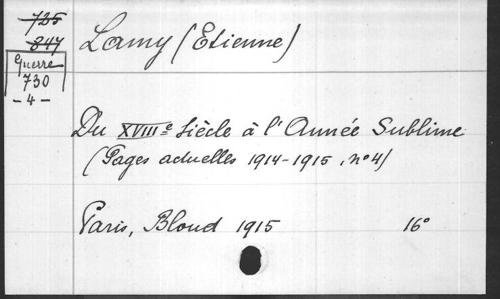 725
847
Guerre
730
- 4 -
Lamy (Etienne)
Du XVIIIe Siècle à l'Année Sublime
(Pages actuelles 1914-1915, no 4)
Paris, Bloud 1915 16°